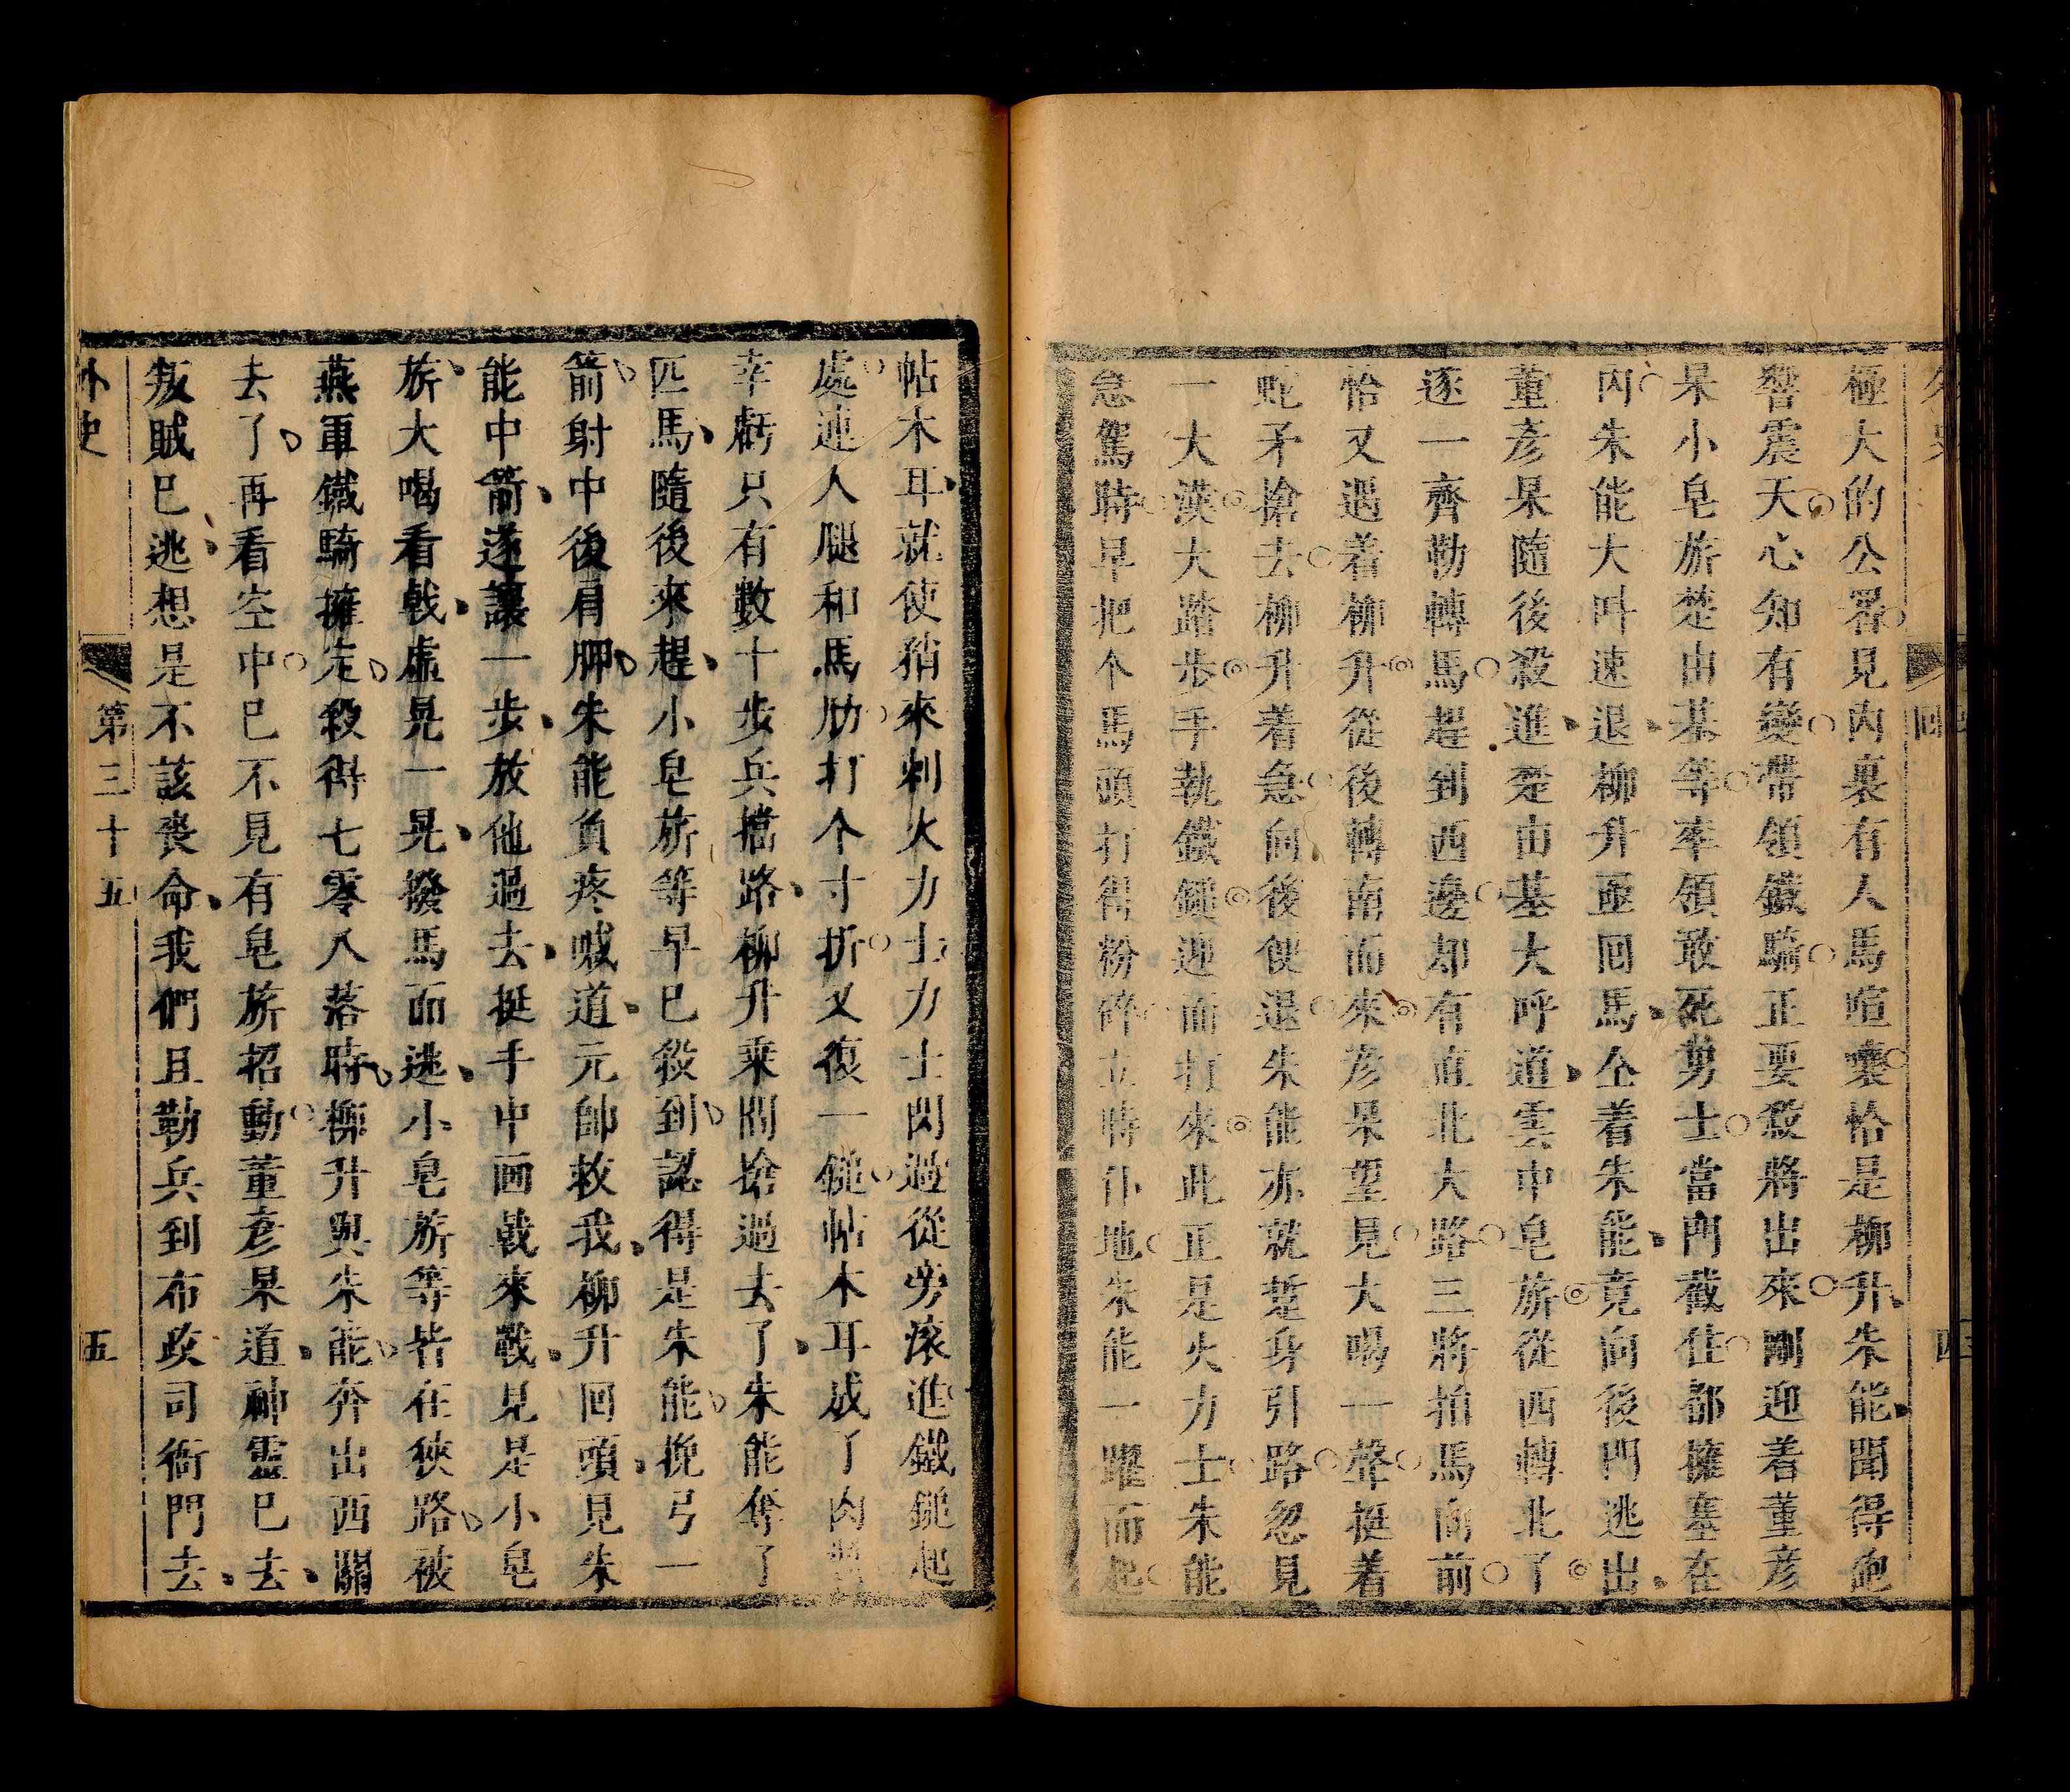 極大的公署見內裏有人馬喧嚷恰是柳升朱能聞得砲
響震天心知有變帶領鐵騎正要殺將出來剛迎着董彦
杲小皂旂楚由基等率領敢死勇士當門截住都擁塞在
內朱能大叫速退柳升亟回馬仝着朱能竟向後門逃出
董彦杲隨後殺進楚由基大呼道雲中皂旂從西轉北了
逐一齊勒轉馬趕到西邊却有直北大路三將拍馬向前
恰又遇着柳升從後轉南而來彦杲望見大喝一聲挺着
蛇矛搶去柳升着急向後便退朱能亦就踅身引路忽見
一大漢大踏步手執鐵鎚迎面打來此正是火力士朱能
急駕時早把个馬頭打得粉碎立時仆地朱能一躍而起
帖木耳就使矟來刺火力士力士閃過從旁滾進鐵鎚起
處連人腿和馬肋打个寸折又復一鎚帖木耳成了肉醬
幸虧只有數十步兵擋路柳升乘間搶過去了朱能奪了
匹馬隨後來趕小皂旂等早已殺到認得是朱能挽弓一
箭射中後肩胛朱能負疼喊道元帥救我柳升回頭見朱
能中箭遂讓一步放他過去挺手中画戟來戰見是小皂
旂大喝看戟虛晃一晃撥馬而逃小皂旂等皆在狹路被
燕軍鐵騎擁定殺得七零八落時柳升與朱能奔出西關
去了再看空中已不見有皂旂招動董彦杲道神靈已去
叛賊已逃想是不該喪命我們且勒兵到布政司衙門去
外史 第三十五 五